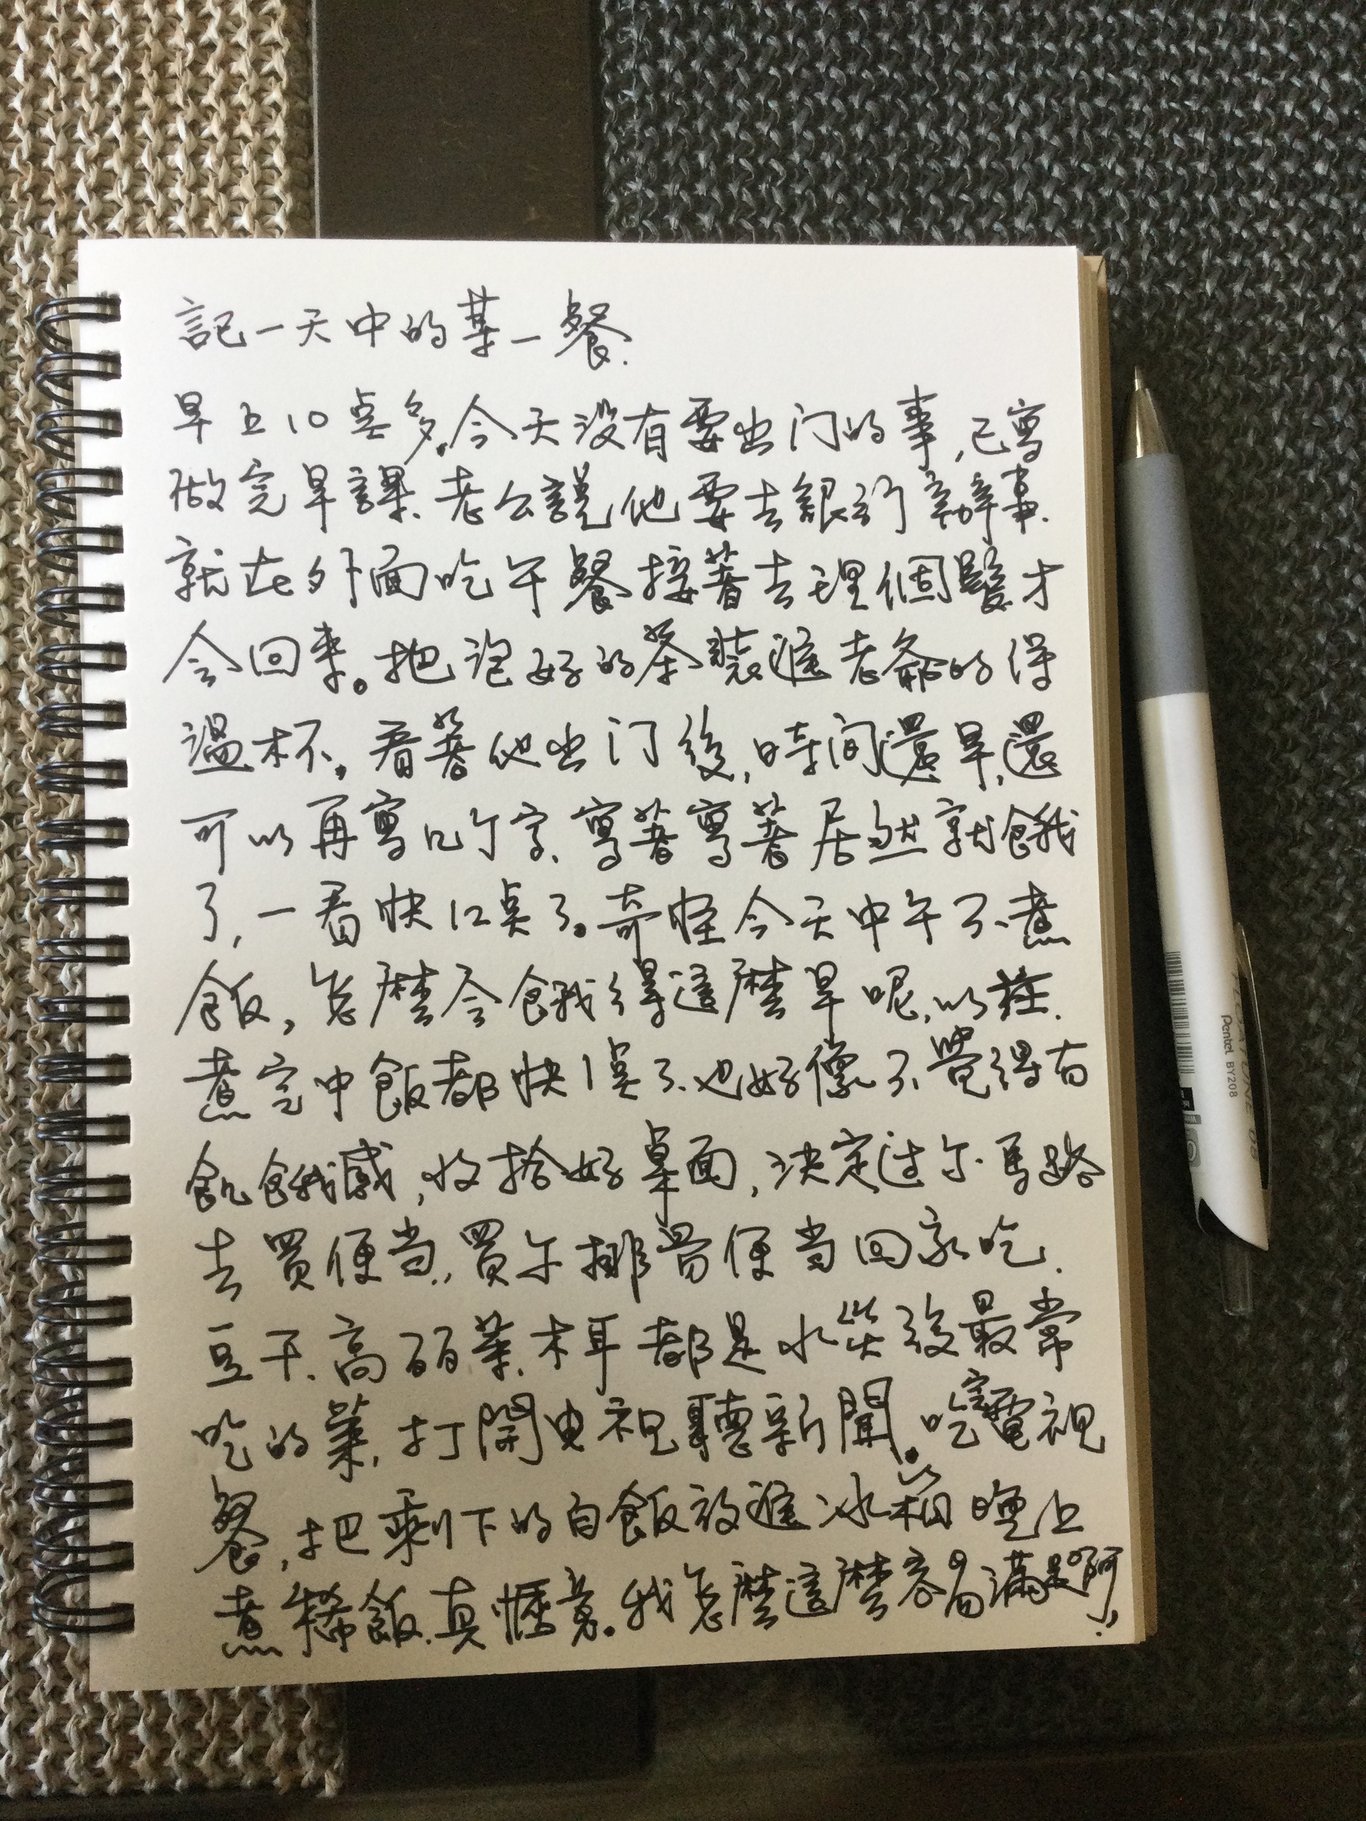 記一天中的某一餐.
早上10點多,今天沒有要出门的事,已寫
做完早課、老公説他要去銀行辦事.
就在外面吃午餐接著去理個髮才
会回来。把泡好的茶裝進老爺的保
溫杯。看著他出门後,時间還早,還
可以再寫几个字、寫著寫著居然就餓
了,一看快12點了。奇怪今天中午不煮
飯,怎麼会餓得這麼早呢,以往.
煮完中飯都快1點了、也好像不覺得有
飢餓感,收拾好桌面,决定过个馬路
去買便当,買个排骨便当回家吃.
豆干、高麗菜、木耳都是水災後最常
吃的菜,打開电視聽新聞。吃完電視
餐,把剩下的白飯放進冰箱晚上
煮稀飯.真愜意。我怎麼這麼容易滿足啊!
Pentel BY208